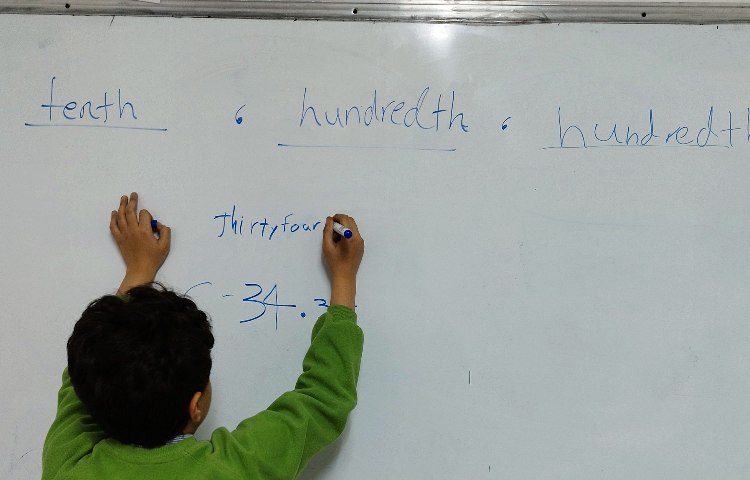 tenth , hundredth , hundredth
Thirtyfour
-34.